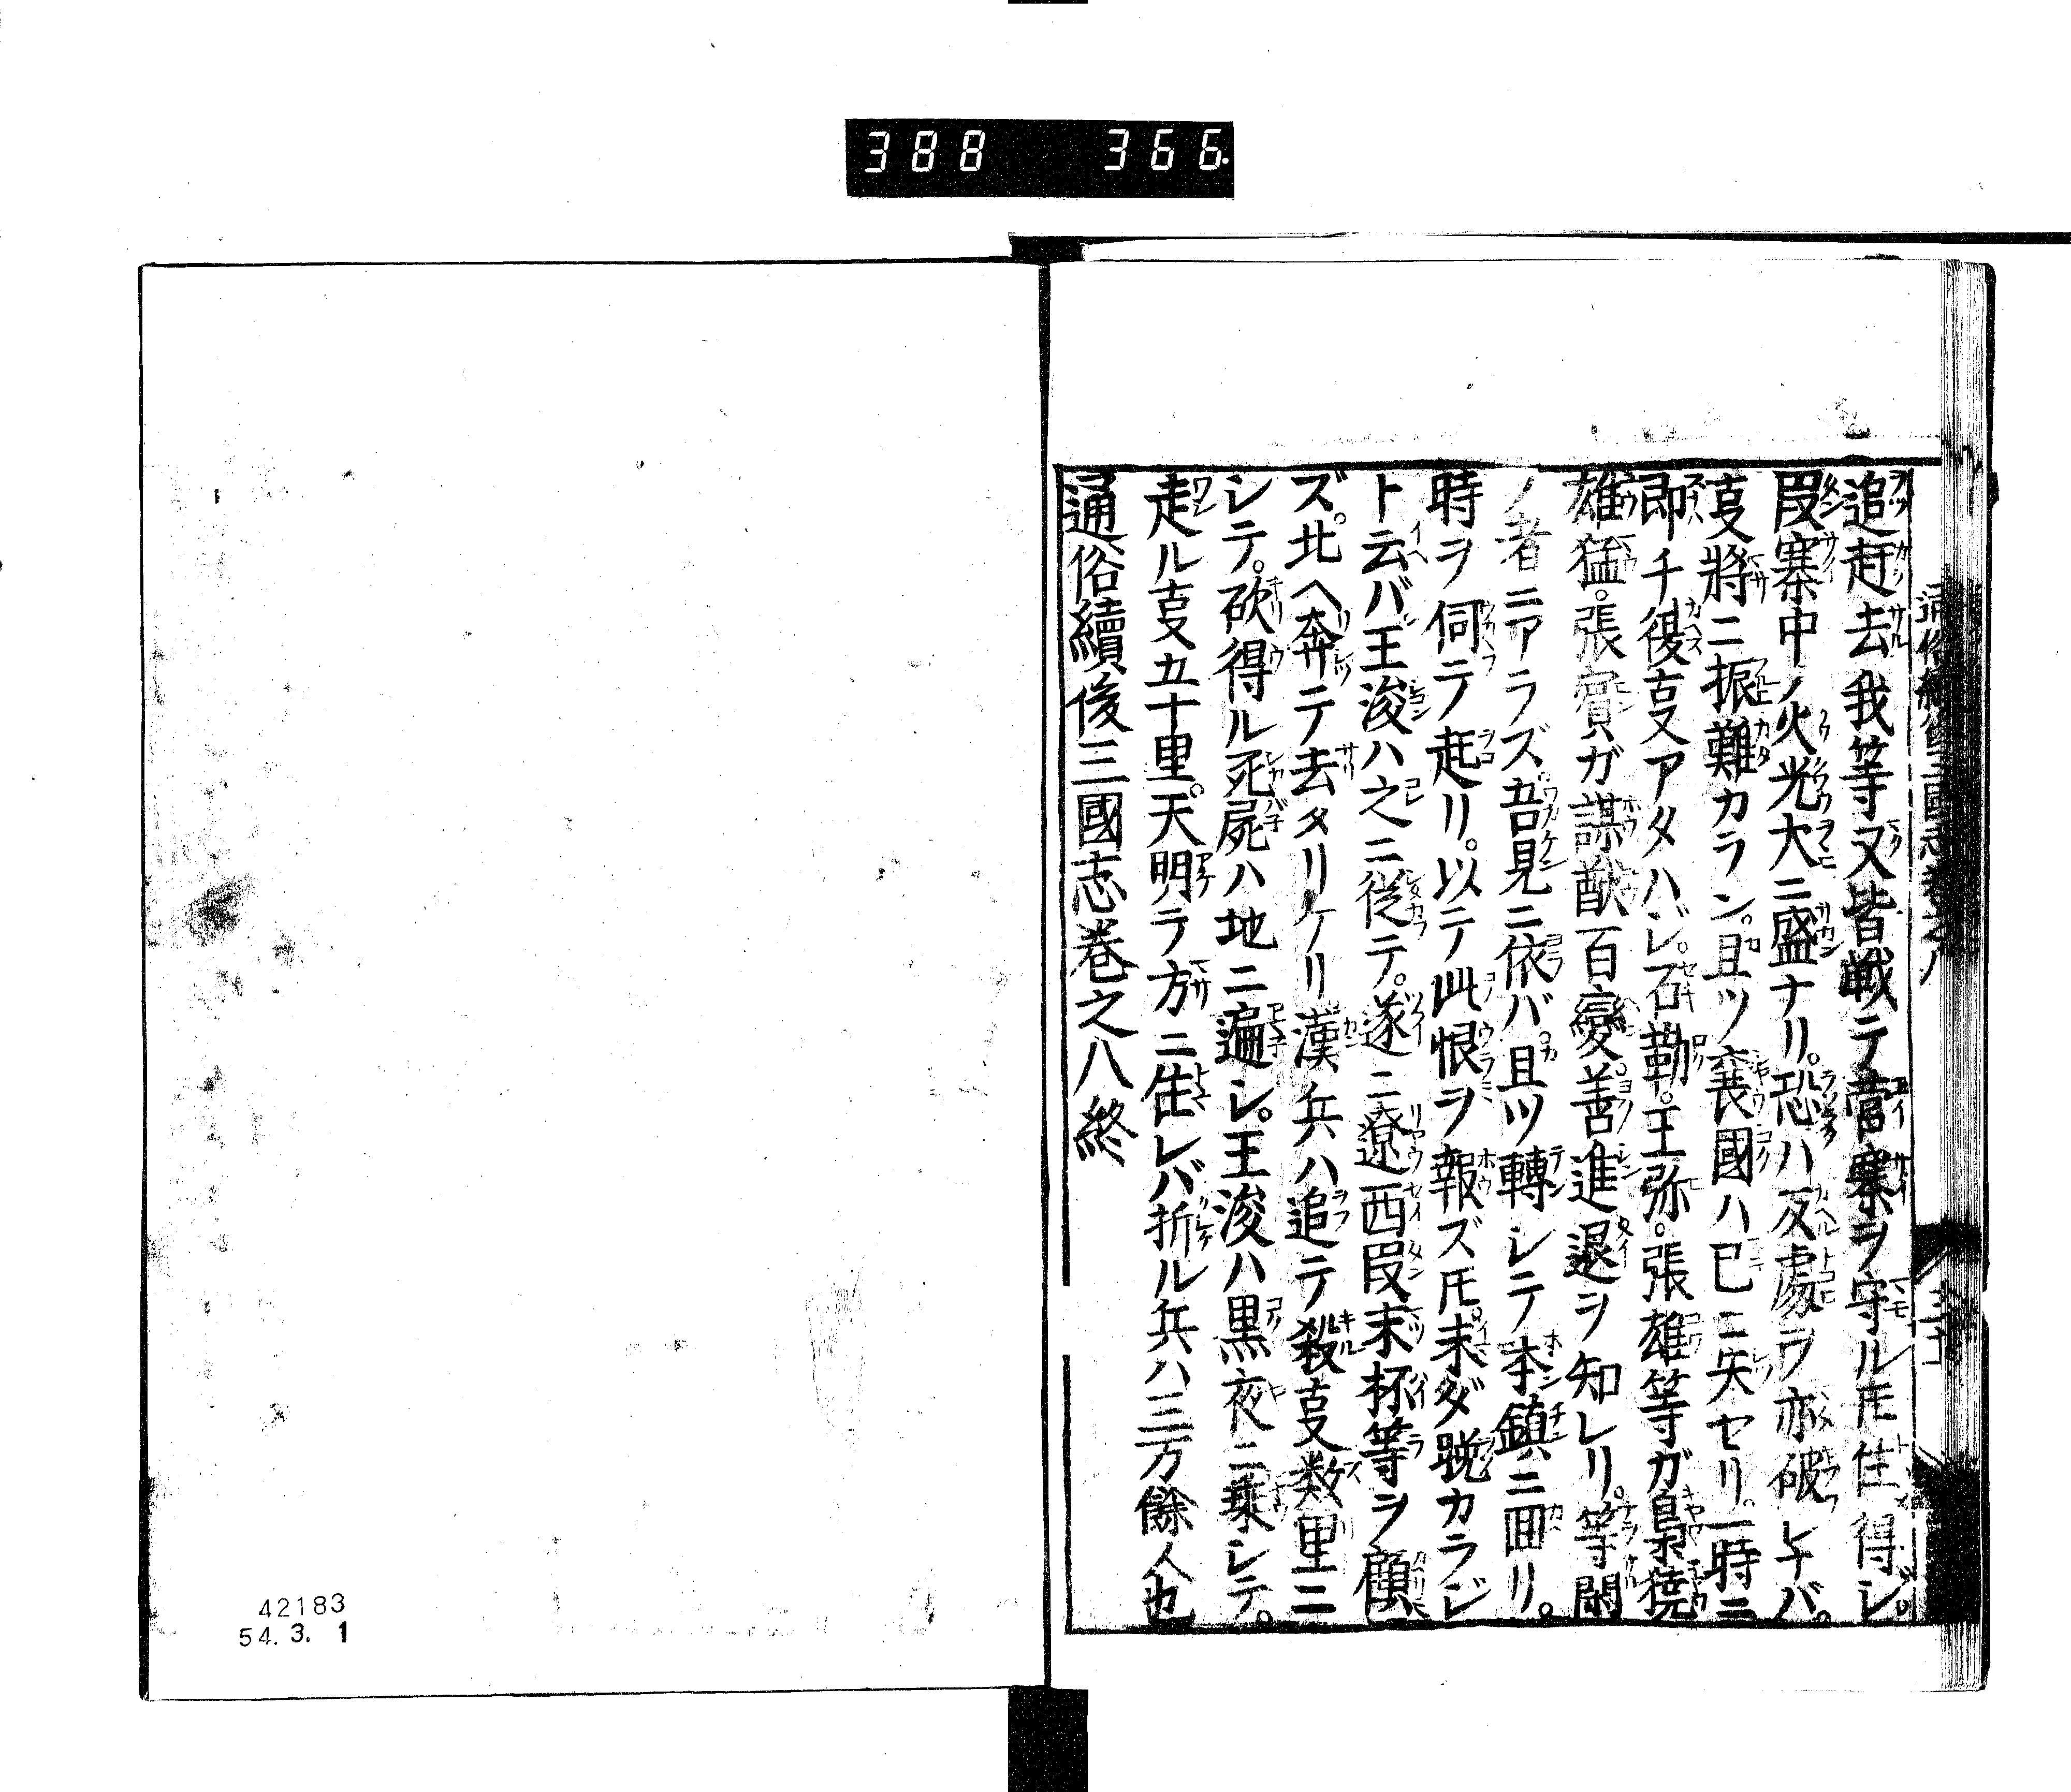 388 366.
追赶去我等又皆戦テ営寨ヲ守ル𪜈住得ジ。
段寨中ノ火光大ニ盛ナリ。恐ハ反處ヲ亦破レナバ。
㕝將ニ振難カラン。且ツ襄國ハ已ニ失セリ。一時ニ
即チ復㕝アタハジ。石勒。王弥。張雄等ガ梟獍
雄猛。張賓ガ謀猷百變。善進退ヲ知レリ。等閑
ノ者ニアラズ。吾見ニ依バ。且ツ轉シテ本鎮ニ囬リ。
時ヲ伺テ起リ。以テ此恨ヲ報ズ𪜈。未ダ晩カラジ
ト云バ王浚ハ之ニ從テ。遂ニ遼西段末杯等ヲ顧
ズ。北ヘ奔テ去タリケリ漢兵ハ追テ殺㕝数里ニ
シテ。砍得ル死屍ハ地ニ遍シ。王浚ハ黒夜ニ乘シテ。
走ル㕝五十里。天明テ方ニ住レバ折ル兵ハ三万餘人也
通俗續後三國志巻之八終
42183
54. 3. 1